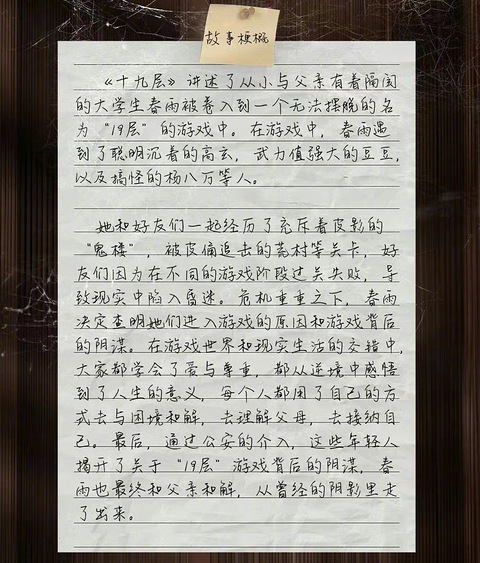 故事梗概
《十九层》讲述了从小与父亲有着隔阂
的大学生春雨被卷入到一个无法摆脱的名
为“19层”的游戏中。在游戏中，春雨遇
到了聪明沉着的高玄，武力值强大的豆豆，
以及搞怪的杨八万等人。
她和好友们一起经历了充斥着皮影的
“鬼楼”，被皮俑追击的荒村等关卡，好
友们因为在不同的游戏阶段过关失败，导
致现实中陷入昏迷。危机重重之下，春雨
决定查明她们进入游戏的原因和游戏背后
的阴谋。在游戏世界和现实生活的交错中，
大家都学会了爱与尊重，都从逆境中感悟
到了人生的意义，每个人都用了自己的方
式去与困境和解，去理解父母，去接纳自
己。最后，通过公安的介入，这些年轻人
揭开了关于“19层”游戏背后的阴谋，春
雨也最终和父亲和解，从曾经的阴影里走
了出来。